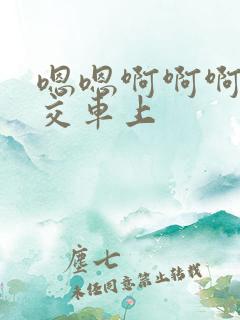 嗯嗯啊啊啊
交车上
尘七
未经同意禁止转载